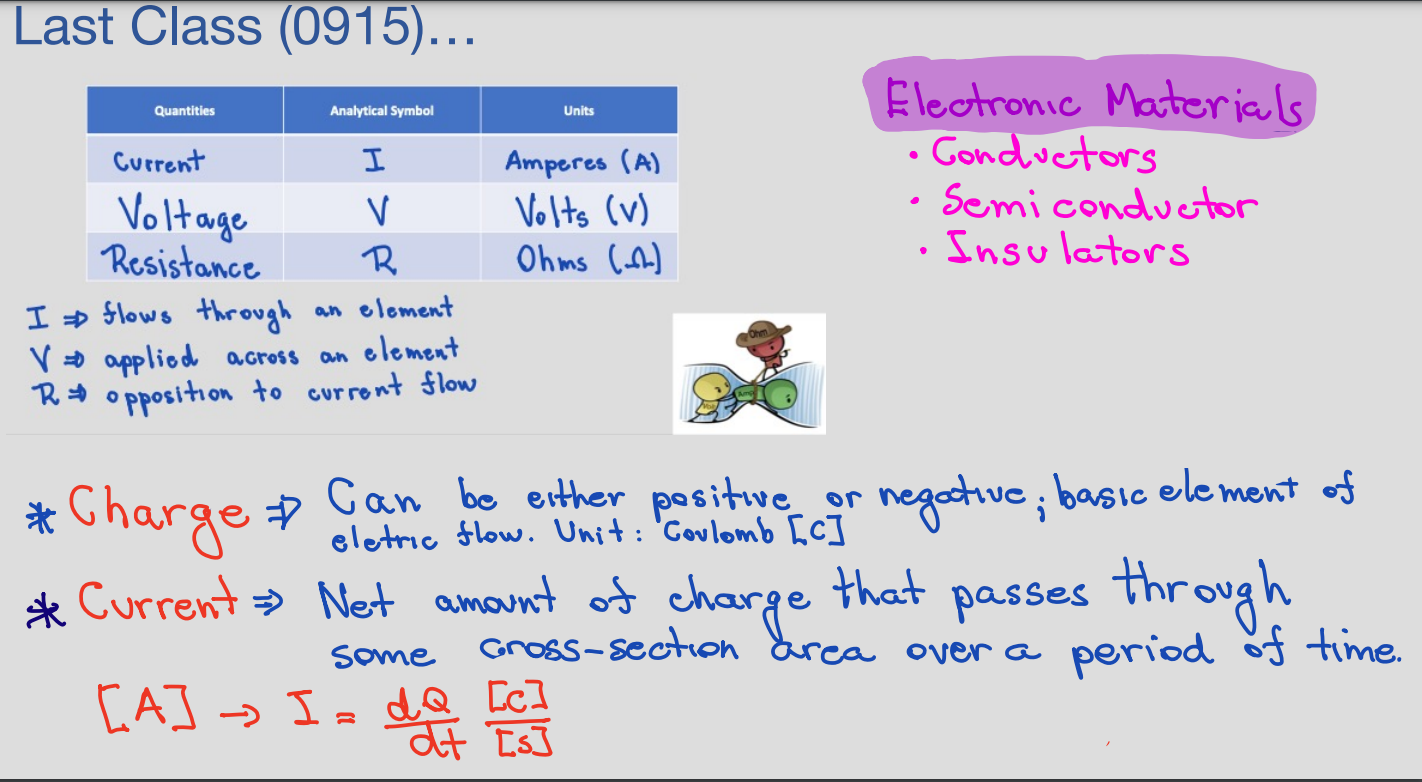 Last Class (0915)...
Quantities Analytical Symbol Units
Current I Amperes (A)
Voltage V Volts (V)
Resistance R Ohms (Ω)
I ⇒ flows through an element
V ⇒ applied across an element
R ⇒ opposition to current flow
Electronic Materials
• Conductors
• Semiconductor
• Insulators
Ohm
Volt
Amp
* Charge ⇒ Can be either positive or negative; basic element of
eletric flow. Unit: Coulomb [C]
* Current ⇒ Net amount of charge that passes through
some cross-section area over a period of time.
[A] → I = dQ/dt [C]/[s]